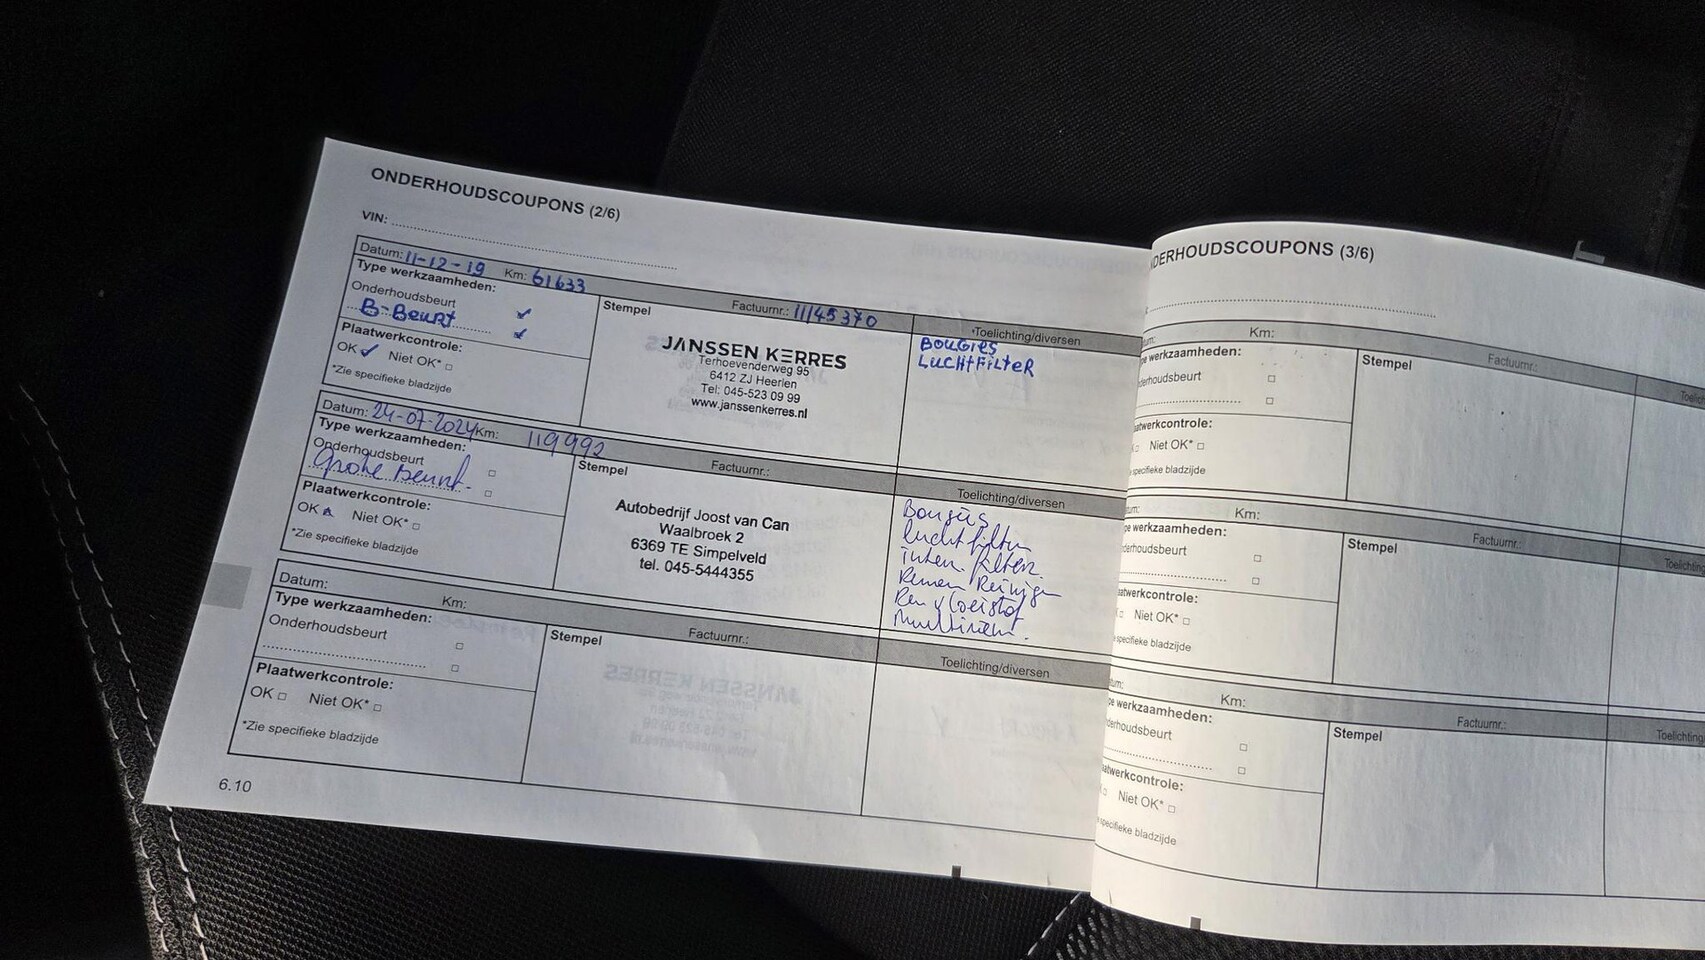 ONDERHOUDSCOUPONS (2/6)
VIN:
Datum: 11-12-19 Km: 61633 Factuurnr.: 11145370
Type werkzaamheden:
Onderhoudsbeurt
B-Beurt
Plaatwerkcontrole:
OK Niet OK*
*Zie specifieke bladzijde
Stempel
JANSSEN KERRES
Terhoevenderweg 95
6412 ZJ Heerlen
Tel: 045-523 09 99
www.janssenkerres.nl
Toelichting/diversen
BOUGIES
LUCHTFILTER
Datum: 24-07-2024 Km: 119992 Factuurnr.:
Type werkzaamheden:
Onderhoudsbeurt
Grote beurt.
Plaatwerkcontrole:
OK Niet OK*
*Zie specifieke bladzijde
Stempel
Autobedrijf Joost van Can
Waalbroek 2
6369 TE Simpelveld
tel. 045-5444355
Toelichting/diversen
Bougies
luchtfilter
filter.
Remmen Reinigen
Remvloeistof
Datum: Km: Factuurnr.:
Type werkzaamheden:
Onderhoudsbeurt
Plaatwerkcontrole:
OK Niet OK*
*Zie specifieke bladzijde
Stempel
Toelichting/diversen
6.10
DERHOUDSCOUPONS (3/6)
Km: Factuurnr.:
werkzaamheden:
derhoudsbeurt
aatwerkcontrole:
Niet OK*
specifieke bladzijde
Stempel
Km: Factuurnr.:
werkzaamheden:
derhoudsbeurt
aatwerkcontrole:
Niet OK*
specifieke bladzijde
Stempel
Toelichting
Km: Factuurnr.:
werkzaamheden:
derhoudsbeurt
aatwerkcontrole:
Niet OK*
specifieke bladzijde
Stempel
Toelichting